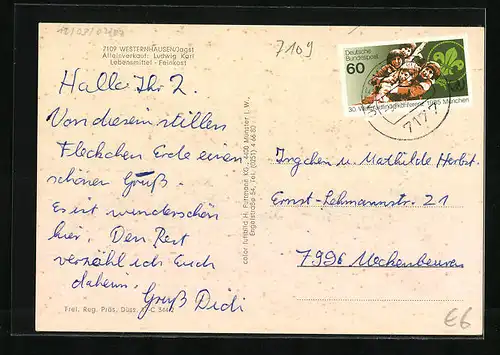 7109 WESTERNHAUSEN/Jagst
Alleinverkauf: Ludwig Karl
Lebensmittel - Feinkost
7109
Hallo Ihr 2.
Von diesem stillen
Fleckchen Erde einen
schönen Gruß.
Es ist wunderschön
hier. Den Rest
erzähl ich Euch
daheim.
Gruß Didi
Frei. Reg. Präs. Düss.
color fotobild H. Fettmann KG, 4400 Münster i. W.,
Engelstraße 54, Tel. (0251) 4 66 82
Deutsche
Bundespost
60
30. Weltpfadfinderkonferenz 1985 München
7177
Ingchen u. Mathilde Herbst
Ernst-Lehmannstr. 21
7996 Meckenbeuren
€6